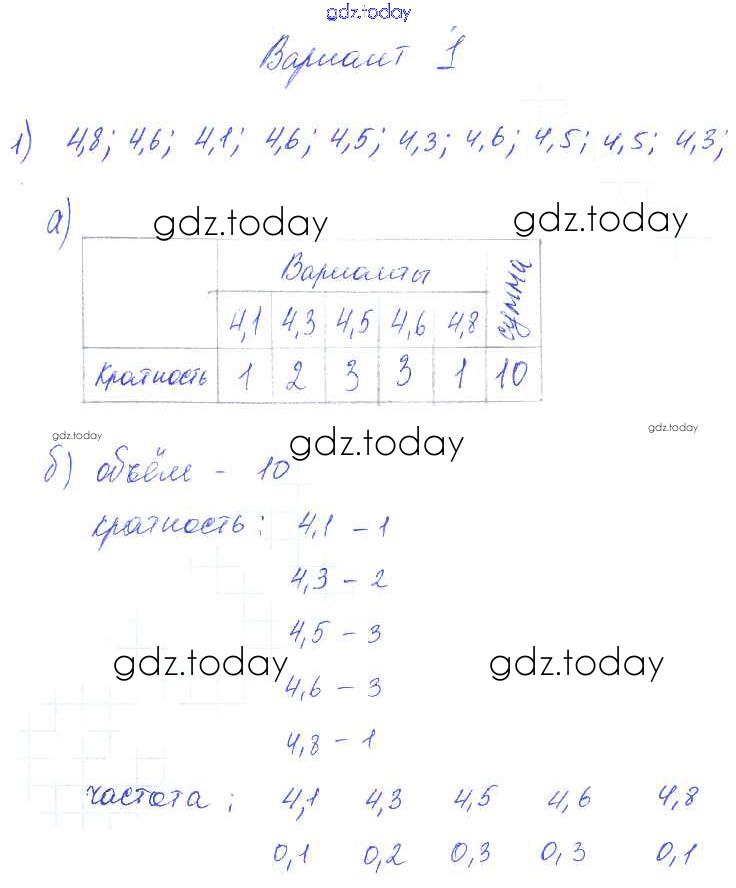 gdz.today
Вариант 1
1) 4,8; 4,6; 4,1; 4,6; 4,5; 4,3; 4,6; 4,5; 4,5; 4,3;
а)
gdz.today gdz.today
Варианты сумма
4,1 4,3 4,5 4,6 4,8
Кратность 1 2 3 3 1 10
gdz.today gdz.today gdz.today
б) объём - 10
кратность: 4,1 - 1
4,3 - 2
4,5 - 3
gdz.today gdz.today
4,6 - 3
4,8 - 1
частота: 4,1 4,3 4,5 4,6 4,8
0,1 0,2 0,3 0,3 0,1